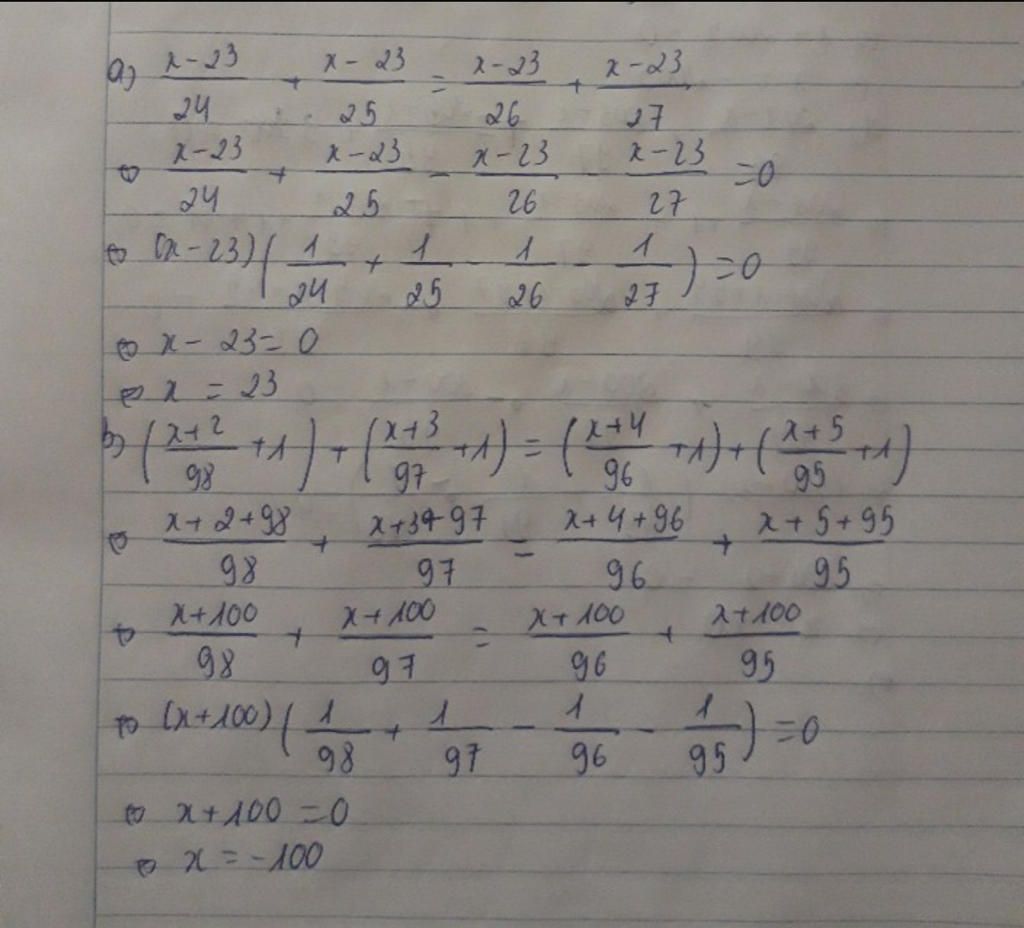 a) \frac{x-23}{24} + \frac{x-23}{25} = \frac{x-23}{26} + \frac{x-23}{27}
⇔ \frac{x-23}{24} + \frac{x-23}{25} - \frac{x-23}{26} - \frac{x-23}{27} = 0
⇔ (x-23)(\frac{1}{24} + \frac{1}{25} - \frac{1}{26} - \frac{1}{27}) = 0
⇔ x - 23 = 0
⇔ x = 23
b) (\frac{x+2}{98} + 1) + (\frac{x+3}{97} + 1) = (\frac{x+4}{96} + 1) + (\frac{x+5}{95} + 1)
⇔ \frac{x+2+98}{98} + \frac{x+3+97}{97} = \frac{x+4+96}{96} + \frac{x+5+95}{95}
⇔ \frac{x+100}{98} + \frac{x+100}{97} = \frac{x+100}{96} + \frac{x+100}{95}
⇔ (x+100)(\frac{1}{98} + \frac{1}{97} - \frac{1}{96} - \frac{1}{95}) = 0
⇔ x + 100 = 0
⇔ x = -100